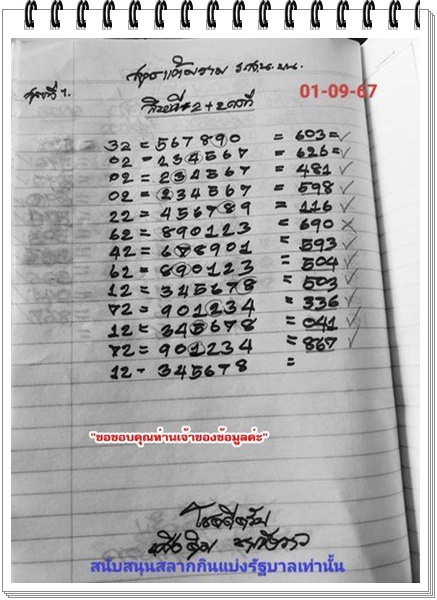 01-09-67
สูตรที่ 1.
32 = 567890 = 603 = ✓
02 = 234567 = 626 = ✓
02 = 234567 = 481 ✓
02 = 234567 = 598 ✓
22 = 456789 = 116 ✓
62 = 890123 = 690 ×
42 = 678901 = 593 ✓
62 = 890123 = 504 ✓
12 = 345678 = 503 ✓
72 = 901234 = 336 ✓
12 = 345678 = 041 ✓
72 = 901234 = 867 ✓
12 - 345678 =
"ขอขอบคุณท่านเจ้าของข้อมูลค่ะ"
โชคดีครับ
สนับสนุนสลากกินแบ่งรัฐบาลเท่านั้น